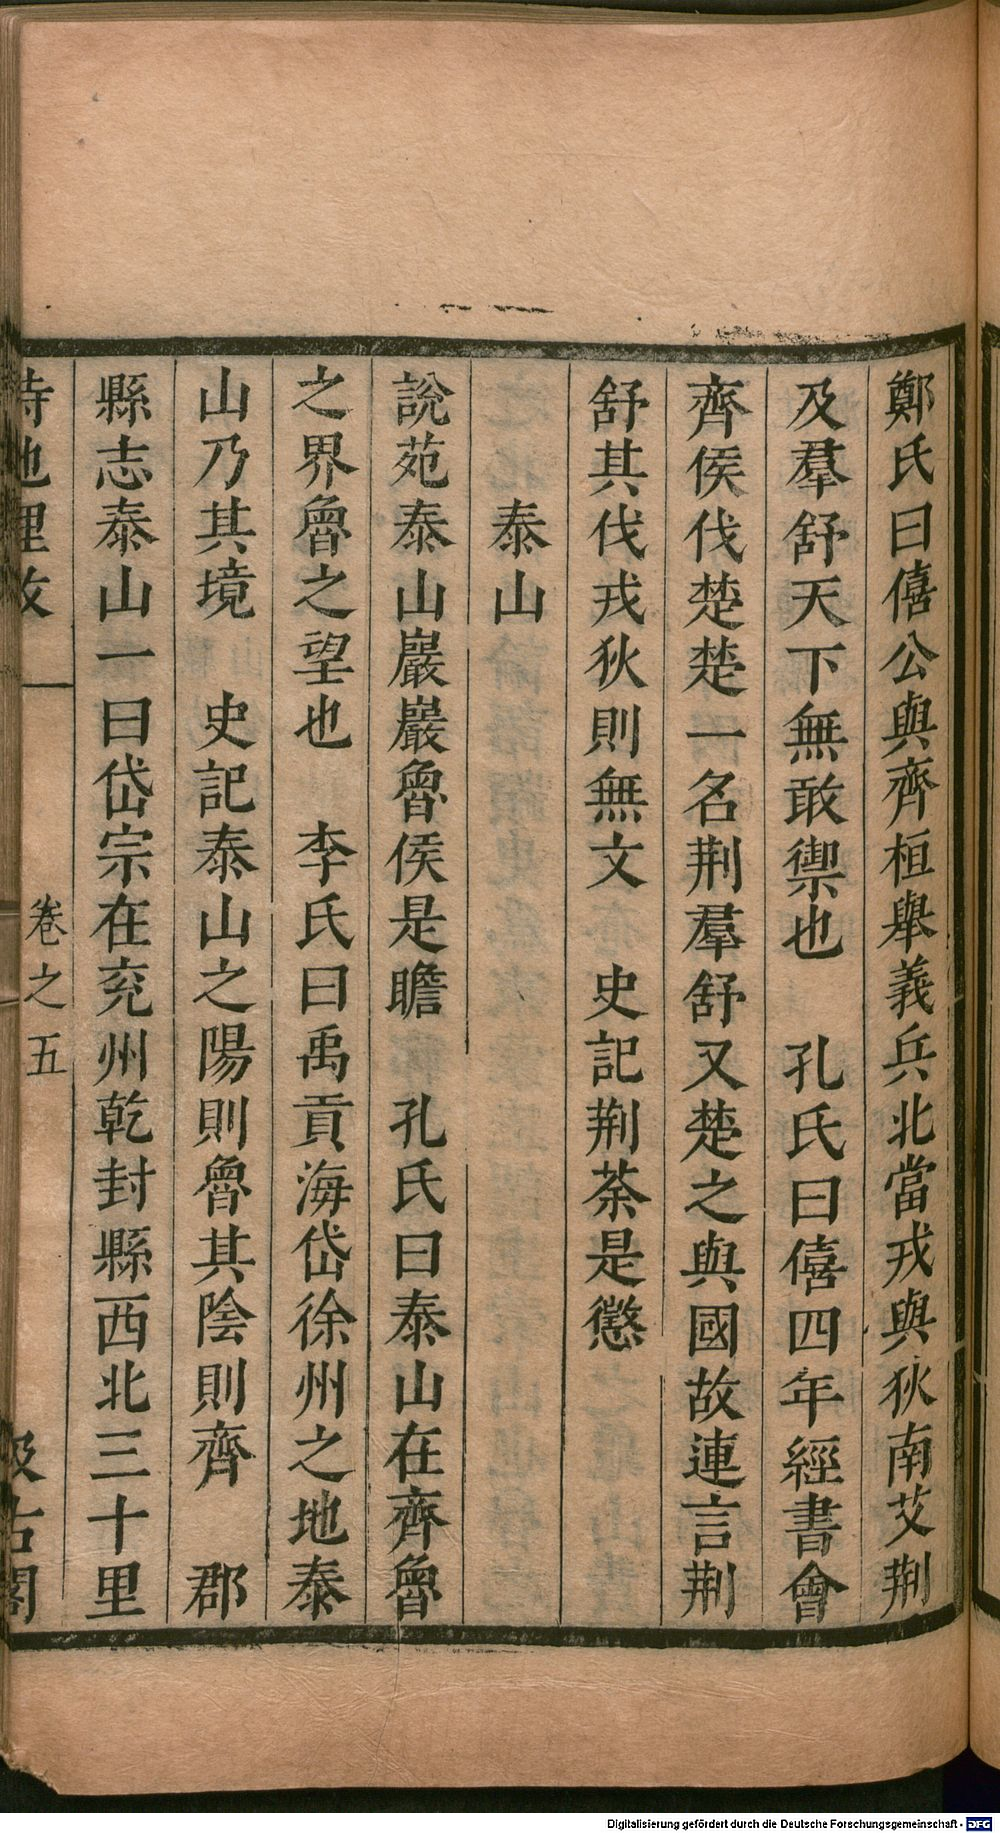 鄭氏曰僖公與齊桓舉義兵北當戎與狄南艾荆
及羣舒天下無敢禦也　孔氏曰僖四年經書會
齊侯伐楚楚一名荆羣舒又楚之與國故連言荆
舒其伐戎狄則無文　史記荆荼是懲
泰山
說苑泰山巖巖魯侯是瞻　孔氏曰泰山在齊魯
之界魯之望也　李氏曰禹貢海岱徐州之地泰
山乃其境　史記泰山之陽則魯其陰則齊　郡
縣志泰山一曰岱宗在兖州乾封縣西北三十里
詩地理攷　卷之五　汲古閣
Digitalisierung gefördert durch die Deutsche Forschungsgemeinschaft - DFG